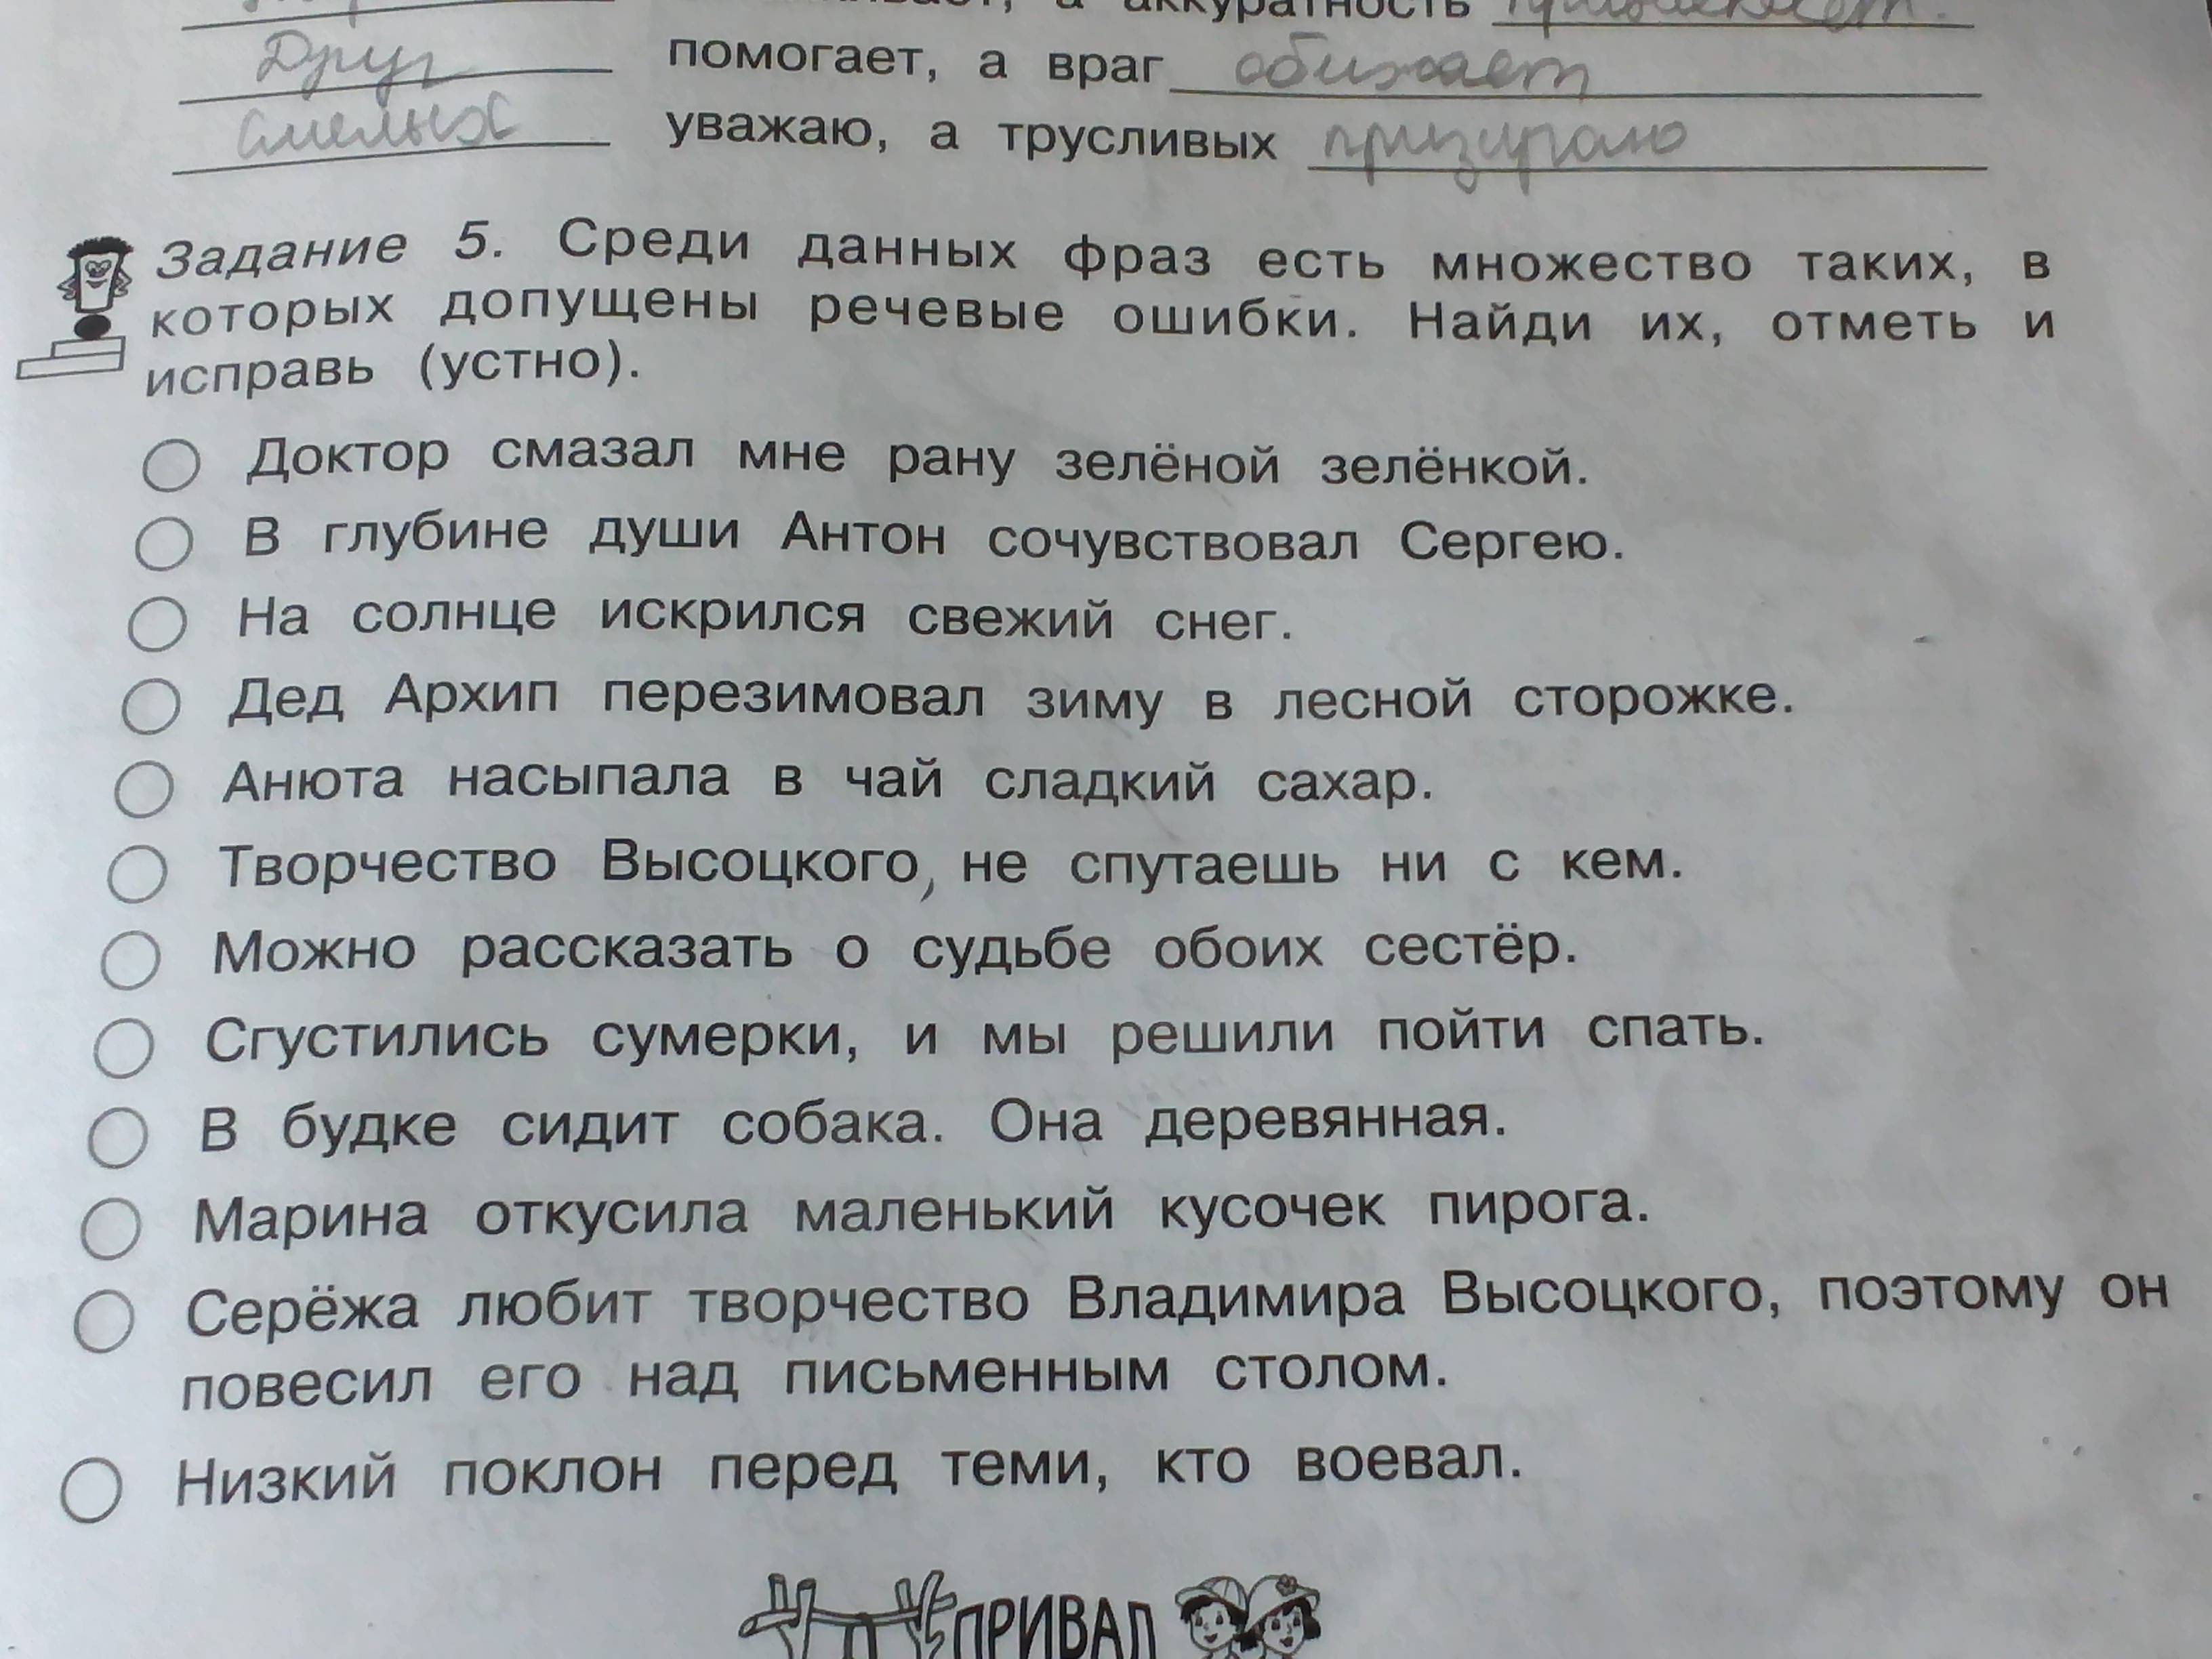 а аккуратность
Друг помогает, а враг обижает
Смелых уважаю, а трусливых призираю
Задание 5. Среди данных фраз есть множество таких, в
которых допущены речевые ошибки. Найди их, отметь и
исправь (устно).
Доктор смазал мне рану зелёной зелёнкой.
В глубине души Антон сочувствовал Сергею.
На солнце искрился свежий снег.
Дед Архип перезимовал зиму в лесной сторожке.
Анюта насыпала в чай сладкий сахар.
Творчество Высоцкого, не спутаешь ни с кем.
Можно рассказать о судьбе обоих сестёр.
Сгустились сумерки, и мы решили пойти спать.
В будке сидит собака. Она деревянная.
Марина откусила маленький кусочек пирога.
Серёжа любит творчество Владимира Высоцкого, поэтому он
повесил его над письменным столом.
Низкий поклон перед теми, кто воевал.
ПРИВАЛ